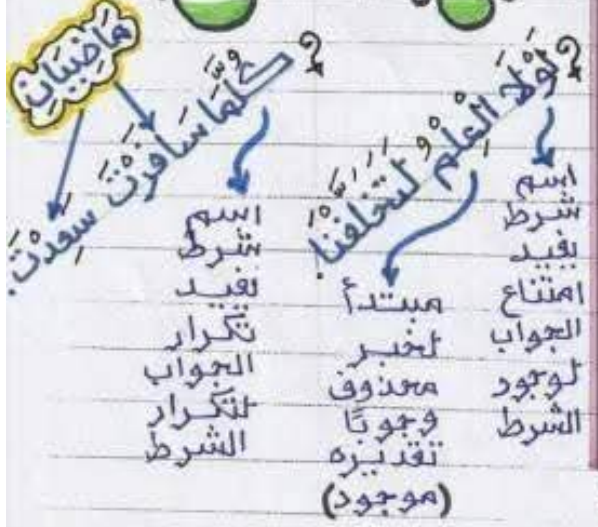 لَوْلَا الْعِلْمُ لَتَخَلَّفْنَا.
اسم
شرط
يفيد
امتناع
الجواب
لوجود
الشرط
مبتدأ
لخبر
محذوف
وجوبًا
تقديره
(موجود)
كُلَّمَا سَافَرْتَ سَعِدْتَ.
اسم
شرط
يفيد
تكرار
الجواب
لتكرار
الشرط
مَاضِيَانِ